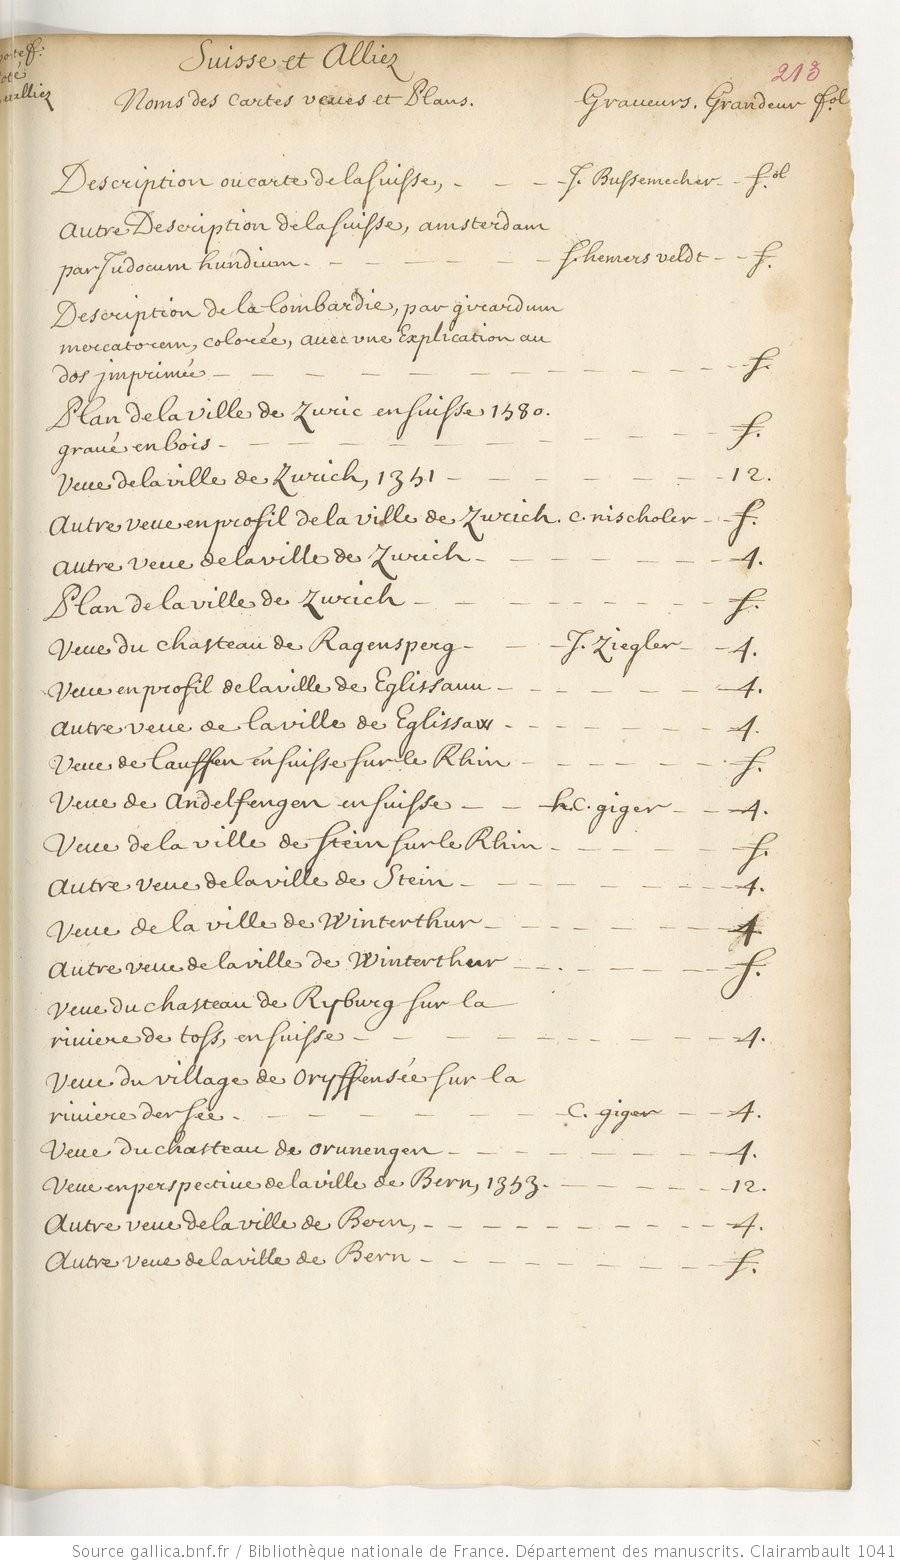 Suisse et Alliez
213
Noms des cartes veues et Plans. Graveurs. Grandeur fol
Description ou carte de la suisse, - - - J. Bussemecher - - fol
autre Description de la suisse, amsterdam
par Judocum hundium - - - - - - - s. hemers veldt - - f.
Description de la lombardie, par girardum
mercatorem, colorée, avec vne Explication au
dos jmprimée - - - - - - - - - - - - f.
Plan de la ville de Zuric en suisse 1580.
gravé en bois - - - - - - - - - - - f.
Veue de la ville de Zurich, 1351 - - - - - - - 12.
Autre veue en profil de la ville de Zurich. c. nischoler - - f.
autre veue de la ville de Zurich - - - - - - - 4.
Plan de la ville de Zurich - - - - - - - - f.
Veue du chasteau de Ragensperg - - - J. Ziegler - - 4.
Veue en profil de la ville de Eglissauu - - - - - - 4.
autre veue de la ville de Eglissaw - - - - - - 4.
Veue de lauffen en suisse sur le Rhin - - - - - - f.
Veue de andelfengen en suisse - - h.c. giger - - 4.
Veue de la ville de Stein sur le Rhin - - - - - f.
autre veue de la ville de Stein - - - - - - - 4.
Veue de la ville de Winterthur - - - - - - - 4
autre veue de la ville de Winterthur - - - - - - f.
Veue du chasteau de Ryburg sur la
riviere de toss, en suisse - - - - - - - - - 4.
Veue du village de Oryffensée sur la
riviere der see - - - - - - - c. giger - - 4.
Veue du chasteau de orunengen - - - - - - - 4.
Veue en perspective de la ville de Bern, 1353 - - - - - - 12.
Autre veue de la ville de Bern, - - - - - - - - 4.
Autre veue de la ville de Bern - - - - - - - - f.
Source gallica.bnf.fr / Bibliothèque nationale de France. Département des manuscrits. Clairambault 1041